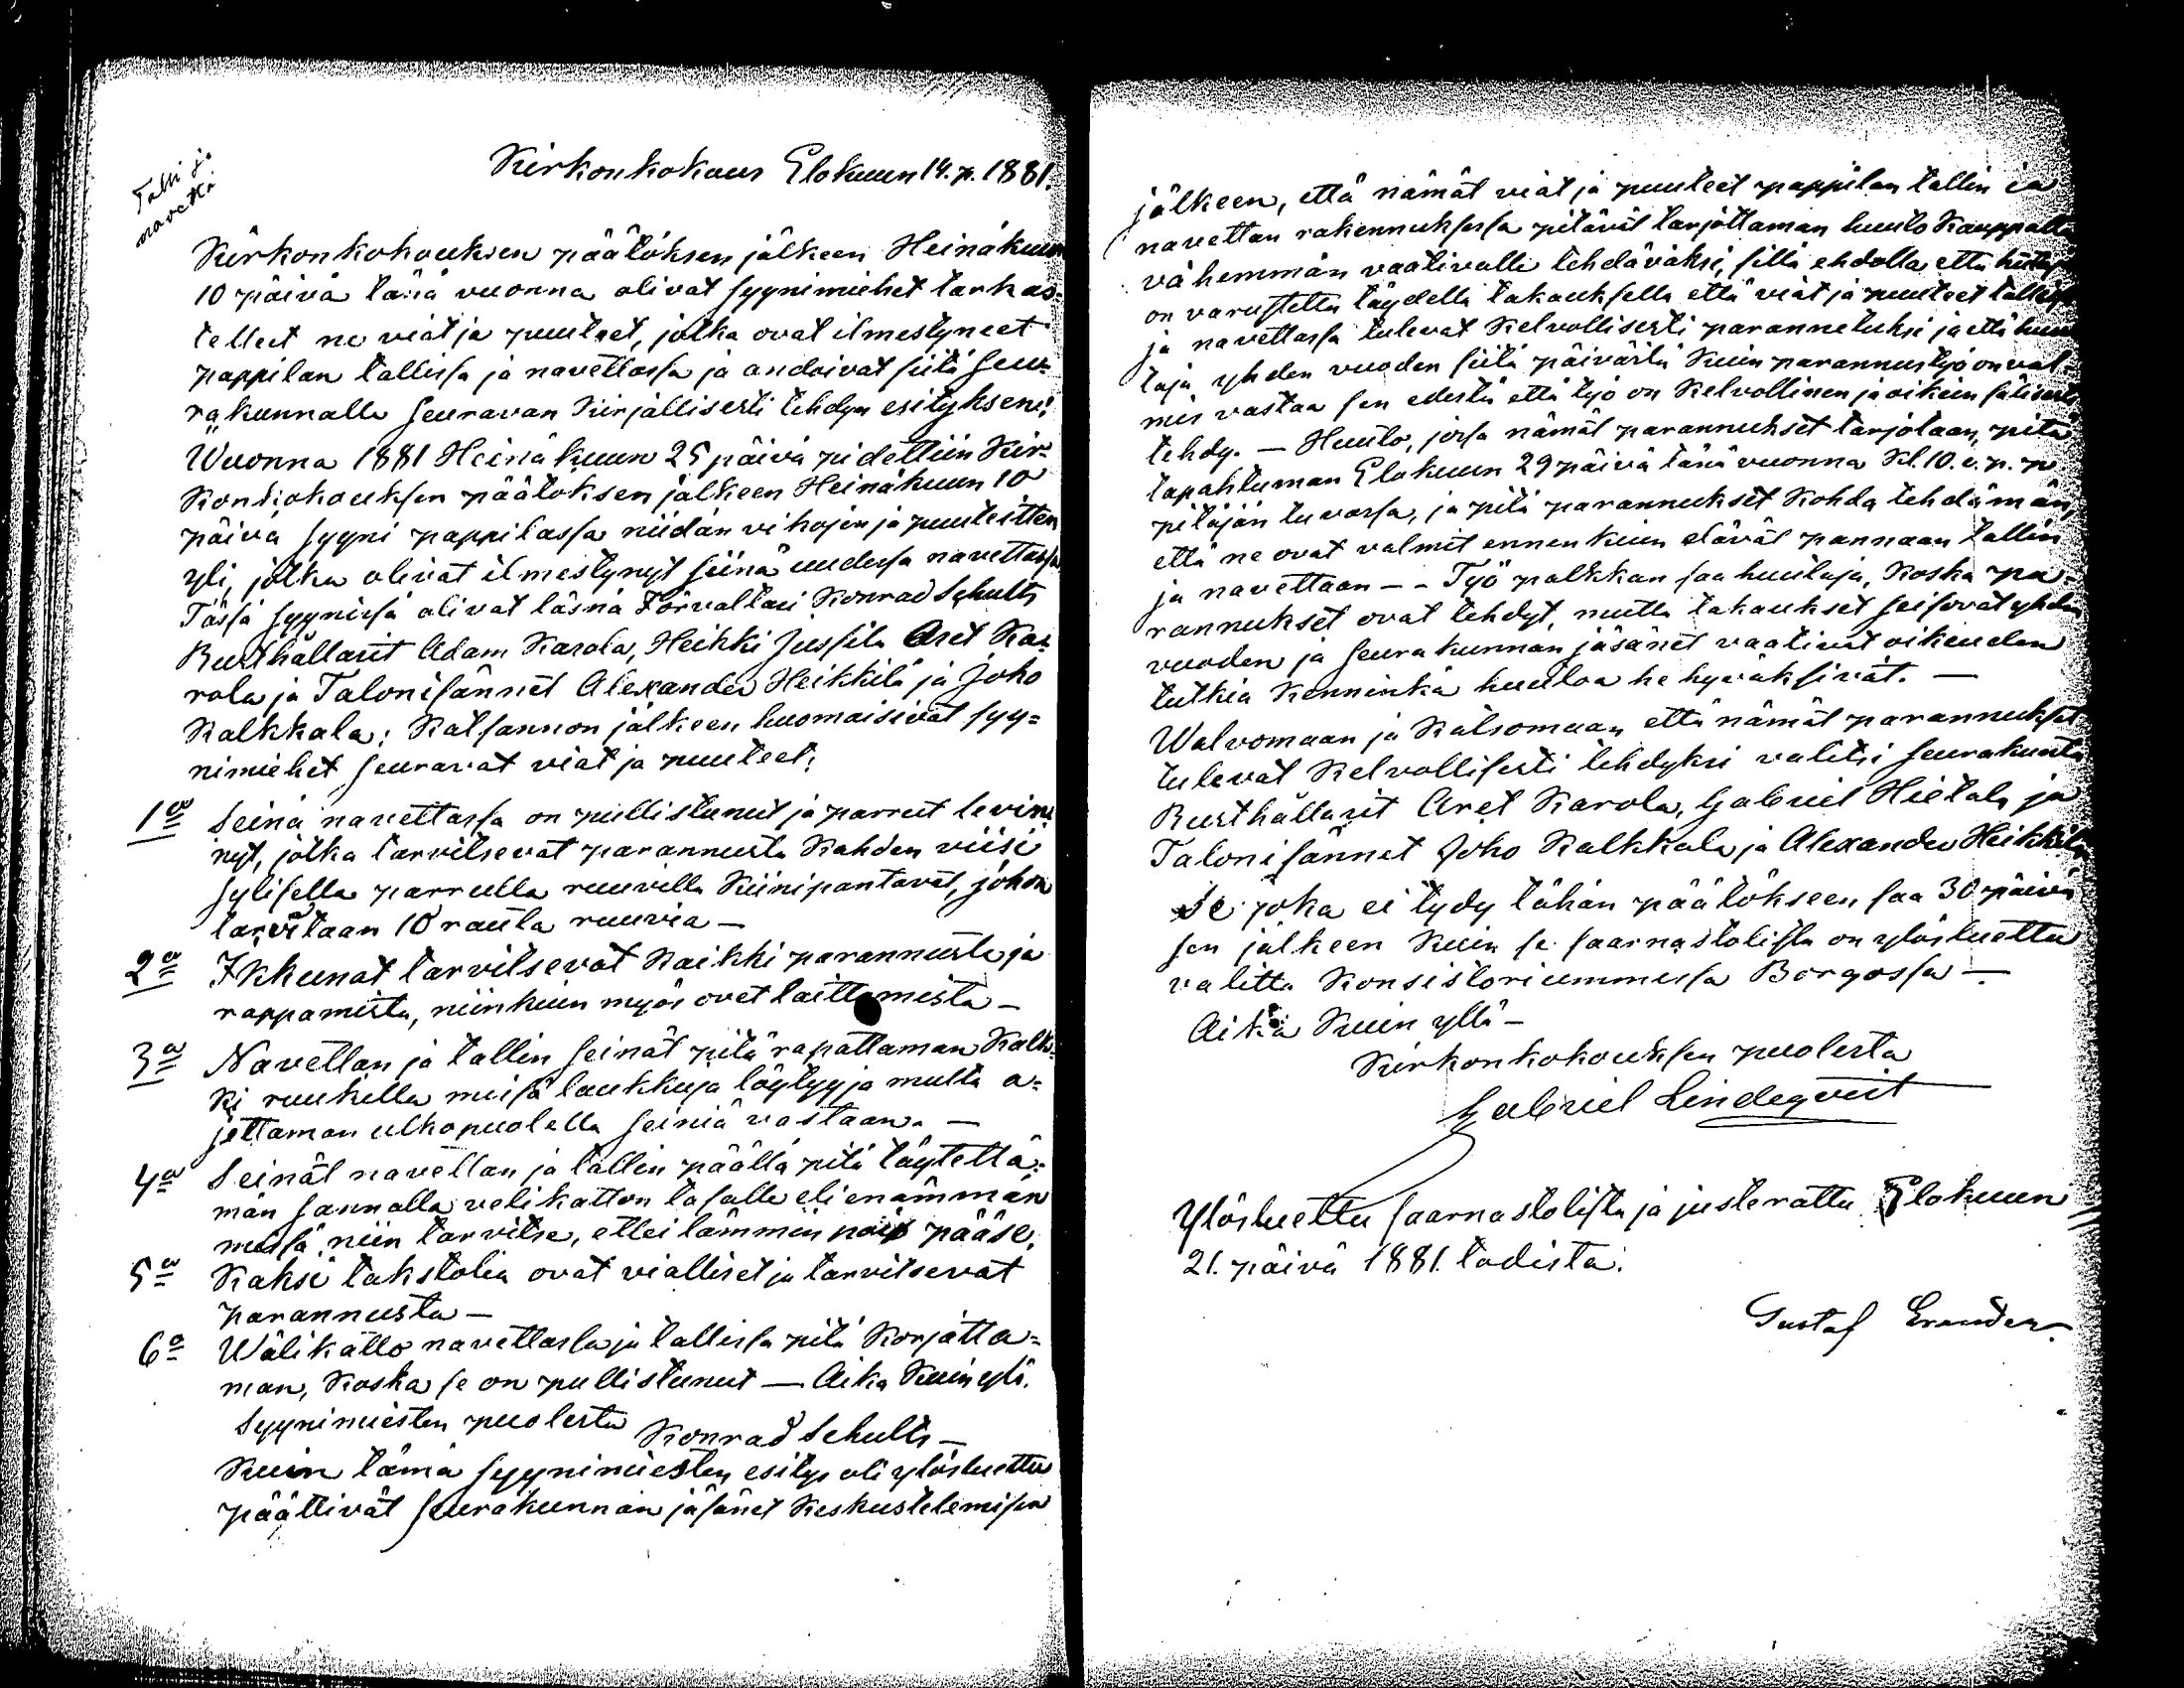 Talli ja
navetta
Kirkonkokous Elokuun 14. p. 1881.
Kirkonkokouksen päätöksen jälkeen Heinäkuun
10 päivä tänä vuonna olivat syynimiehet tarkas-
telleet ne viat ja puuteet, jotka ovat ilmestyneet
pappilan tallissa ja navettassa ja andoivat siitä seu-
rakunnalle seuravan kirjallisesti tehdyn esityksen:
"Wuonna 1881 Heinäkuun 25 päivä pidettiin Kir-
konkokouksen päätöksen jälkeen Heinäkuun 10
päivä syyni pappilassa niidän vikojen ja puuteitten
yli, jotka olivat ilmestynyt siinä uudessa navettassa
Tässä syynissä olivat läsnä Förvaltari Konrad Schults
Rusthållarit Adam Karola, Heikki Jussila Aret Ka-
rola ja Talonisännät Alexander Heikkilä ja Joho
Kalkkala: Katsannon jälkeen huomaisivat syy=
nimiehet seuravat viat ja puuteet:
1a Seinä navettassa on pullistunut ja parret levin-
nyt, jotka tarvitsevat parannusta kahden viisi
sylisella parrulla ruuvilla kiinipantavat, johon
tarvitaan 10 rauta ruuvia —
2a Ikkunat tarvitsevat kaikki parannusta ja
rappamista, niinkuin myös ovet laittamista —
3a Navettan ja tallin seinät pitä rapattaman Kalk-
ki ruukilla missä laukkuja löytyy ja multa a=
jettaman ulkopuolella seiniä vastaan. —
4a Seinät navettan ja tallin päällä pitä täytettä-
män sannalla velikatton tasalle eli enämmän
missä niin tarvitse, ettei lämmin pois pääse.
5a Kaksi takstolia ovat vialliset ja tarvitsevat
parannusta —
6a Wälikatto navettassa ja tallissa pitä korjatta=
man, koska se on pullistunut — Aika kuin yli.
Syynimiesten puolesta Konrad Schults —
Kuin tämä syynimiesten esitys oli ylösluettu
päättivät seurakunnan jäsänet keskustelemisen
jälkeen, että nämät viat ja puuteet pappilan tallin ja
navettan rakennuksessa pitävät tarjottaman huuto kauppalla
vähemmän vaativalle tehdäväksi, sillä ehdolla että
on varustettu täydellä takauksella että viat ja puuteet tallissa
ja navettassa tulevat kelvollisesti paranneluksi ja että huu-
taja yhden vuoden siitä päivästä kuin parannustyö on val-
mis vastaa sen edestä että työ on kelvollinen ja oikein
tehdy. — Huuto, jossa nämät parannukset tarjotaan, pitä
tapahtuman Elokuun 29 päivä tänä vuonna Kl. 10. e. p. p
pitäjän tuvassa, ja pitä parannukset kohda tehdämän,
että ne ovat valmit ennenkuin elävät pannaan tallin
ja navettaan — - Työ palkkan saa huutaja, koska pa-
rannukset ovat tehdyt, mutta takaukset seisovat yhden
vuoden ja seurakunnan jäsänet vaativat oikeuden
tutkia kenninkä huutoa he hyväksivät. —
Walvomaan ja katsomaan että nämät parannukset
tulevat kelvollisesti tehdyksi valitsi seurakunta
Rusthållarit Aret Karola, Gabriel Hietala ja
Talonisännet Joho Kalkkala ja Alexander Heikkilä
Se joka ei tydy tähän päätökseen saa 30 päivä
sen jälkeen kuin se saarnastolista on ylösluettu
valitta Konsistoriummissa Borgossa —.
Aika kuin yllä —
Kirkonkokouksen puolesta
Gabriel Lindeqvist
Ylösluettu saarnastolista ja justerattu Elokuun
21. päivä 1881. todista:
Gustaf